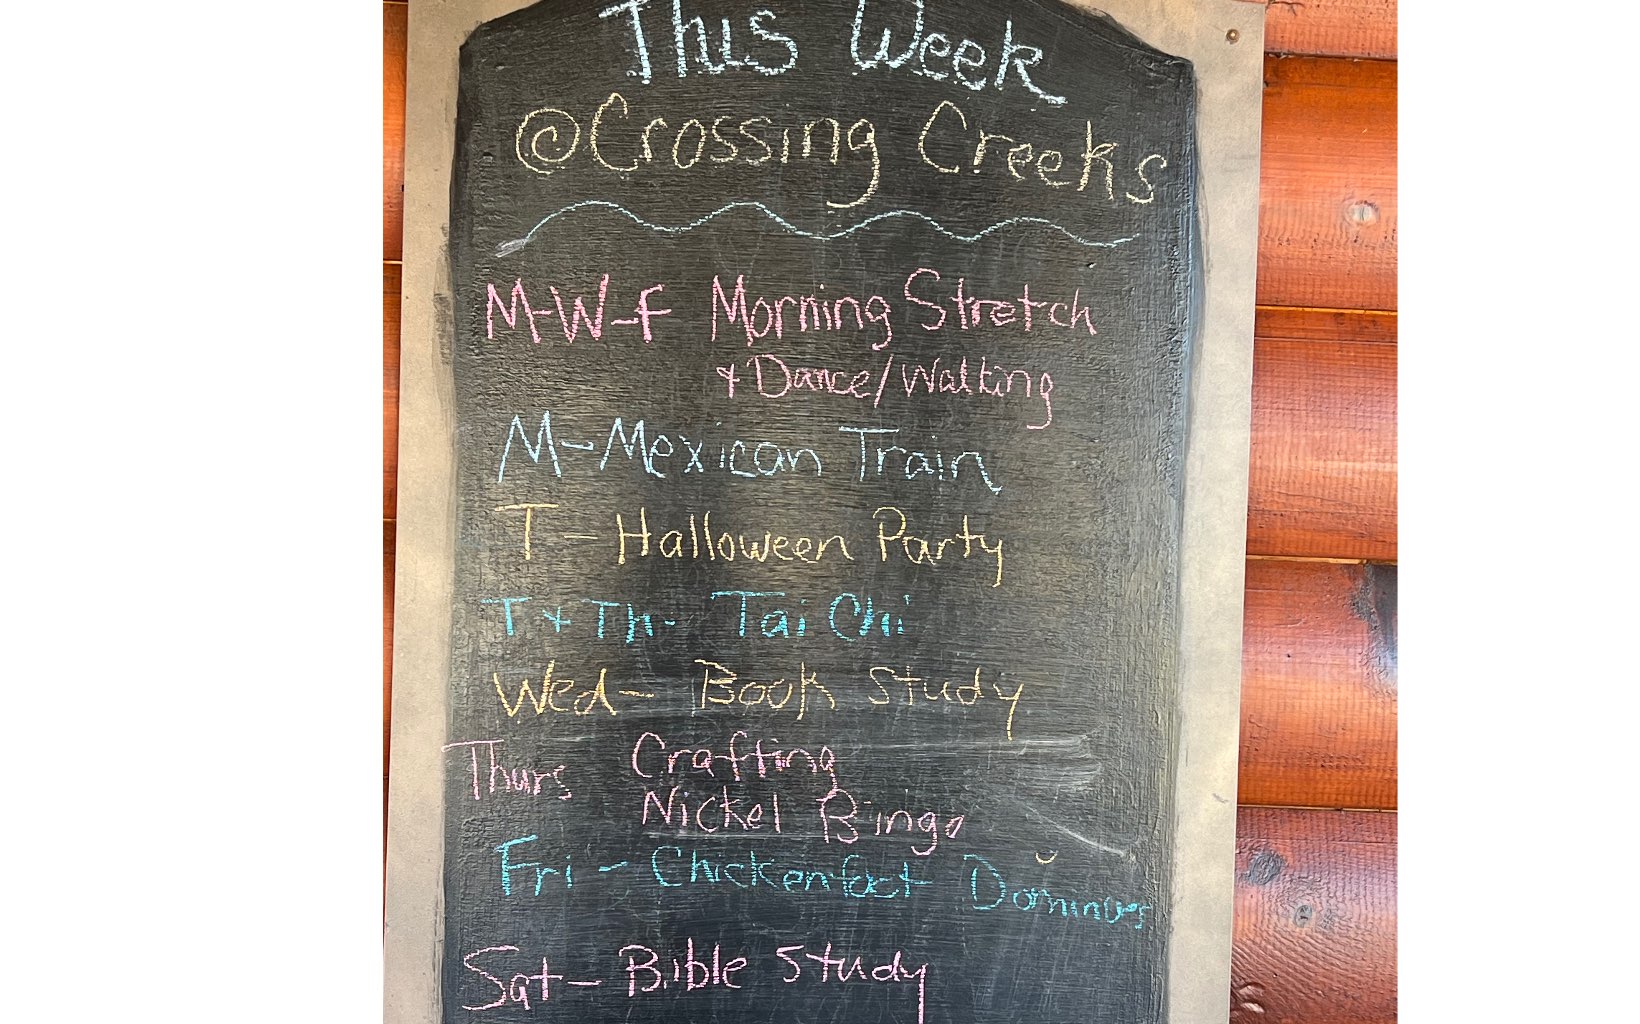 This Week
@Crossing Creeks
M-W-F Morning Stretch
+ Dance/Walking
M-Mexican Train
T - Halloween Party
T + Th- Tai Chi
Wed- Book Study
Thurs Crafting
Nickel Bingo
Fri - Chickenfoot Dominoes
Sat- Bible Study